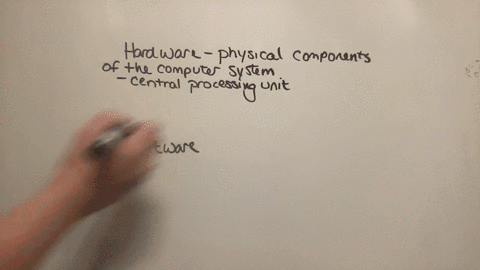 Hardware - physical components
of the computer system
- central processing unit